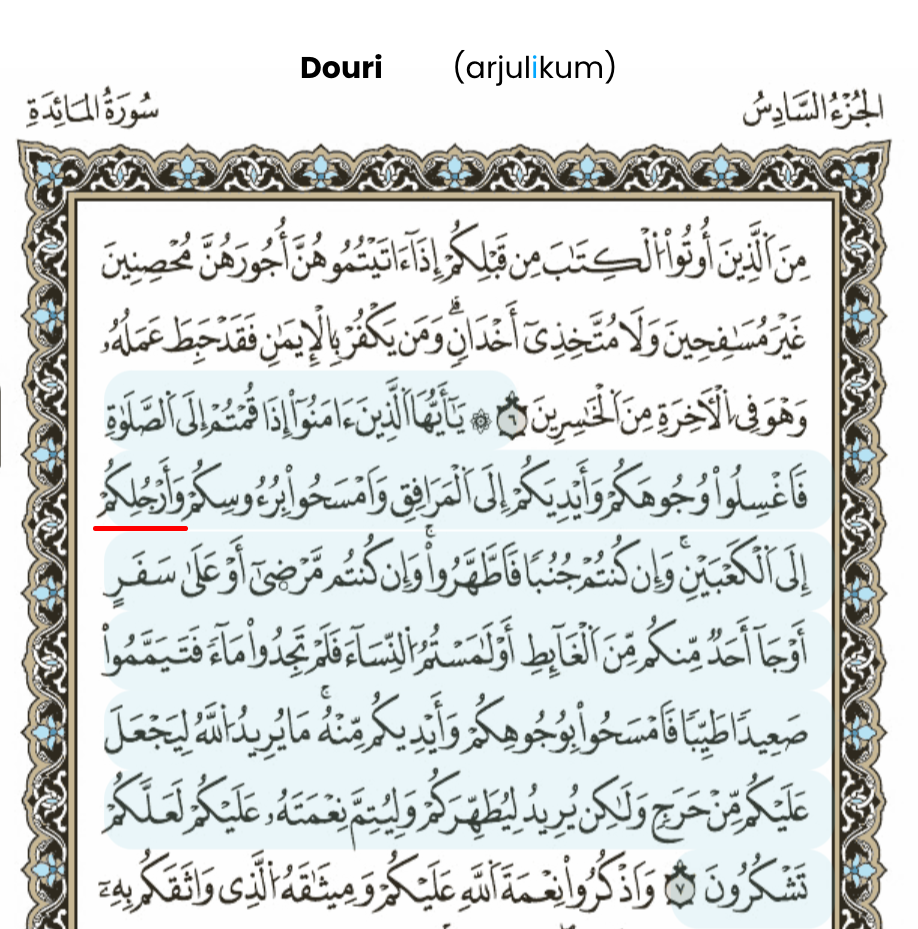 Douri (arjulikum)
الجُزْءُ السَّادِسُ سُورَةُ المَائِدَةِ
مِنَ اَ۬لَّذِينَ أُوتُواْ اُ۬لْكِتَٰبَ مِن قَبْلِكُمْ إِذَآ ءَاتَيْتُمُوهُنَّ أُجُورَهُنَّ مُحْصِنِينَ
غَيْرَ مُسَٰفِحِينَ وَلَا مُتَّخِذِىٓ أَخْدَانٍۗ وَمَن يَكْفُرْ بِالْإِيمَٰنِ فَقَدْ حَبِطَ عَمَلُهُۥ
وَهْوَ فِى اِ۬لْأَخِرَةِ مِنَ اَ۬لْخَٰسِرِينَ ٦ ۞ يَٰٓأَيُّهَا اَ۬لَّذِينَ ءَامَنُوٓاْ إِذَا قُمْتُمْ إِلَى اَ۬لصَّلَوٰةِ
فَاغْسِلُواْ وُجُوهَكُمْ وَأَيْدِيَكُمْ إِلَى اَ۬لْمَرَافِقِ وَامْسَحُواْ بِرُءُوسِكُمْ وَأَرْجُلِكُمْ
إِلَى اَ۬لْكَعْبَيْنِۚ وَإِن كُنتُمْ جُنُبًا فَاطَّهَّرُواْۚ وَإِن كُنتُم مَّرْضۭىٰٓ أَوْ عَلَىٰ سَفَرٍ
أَوْ جَآ أَحَدٌ مِّنكُم مِّنَ اَ۬لْغَآئِطِ أَوْ لَٰمَسْتُمُ اُ۬لنِّسَآءَ فَلَمْ تَجِدُواْ مَآءً فَتَيَمَّمُواْ
صَعِيدًا طَيِّبًا فَامْسَحُواْ بِوُجُوهِكُمْ وَأَيْدِيكُم مِّنْهُۚ مَا يُرِيدُ اُ۬للَّهُ لِيَجْعَلَ
عَلَيْكُم مِّنْ حَرَجٍ وَلَٰكِن يُرِيدُ لِيُطَهِّرَكُمْ وَلِيُتِمَّ نِعْمَتَهُۥ عَلَيْكُمْ لَعَلَّكُمْ
تَشْكُرُونَ ٧ وَاذْكُرُواْ نِعْمَةَ اَ۬للَّهِ عَلَيْكُمْ وَمِيثَٰقَهُ اُ۬لَّذِى وَاثَقَكُم بِهِۦٓ